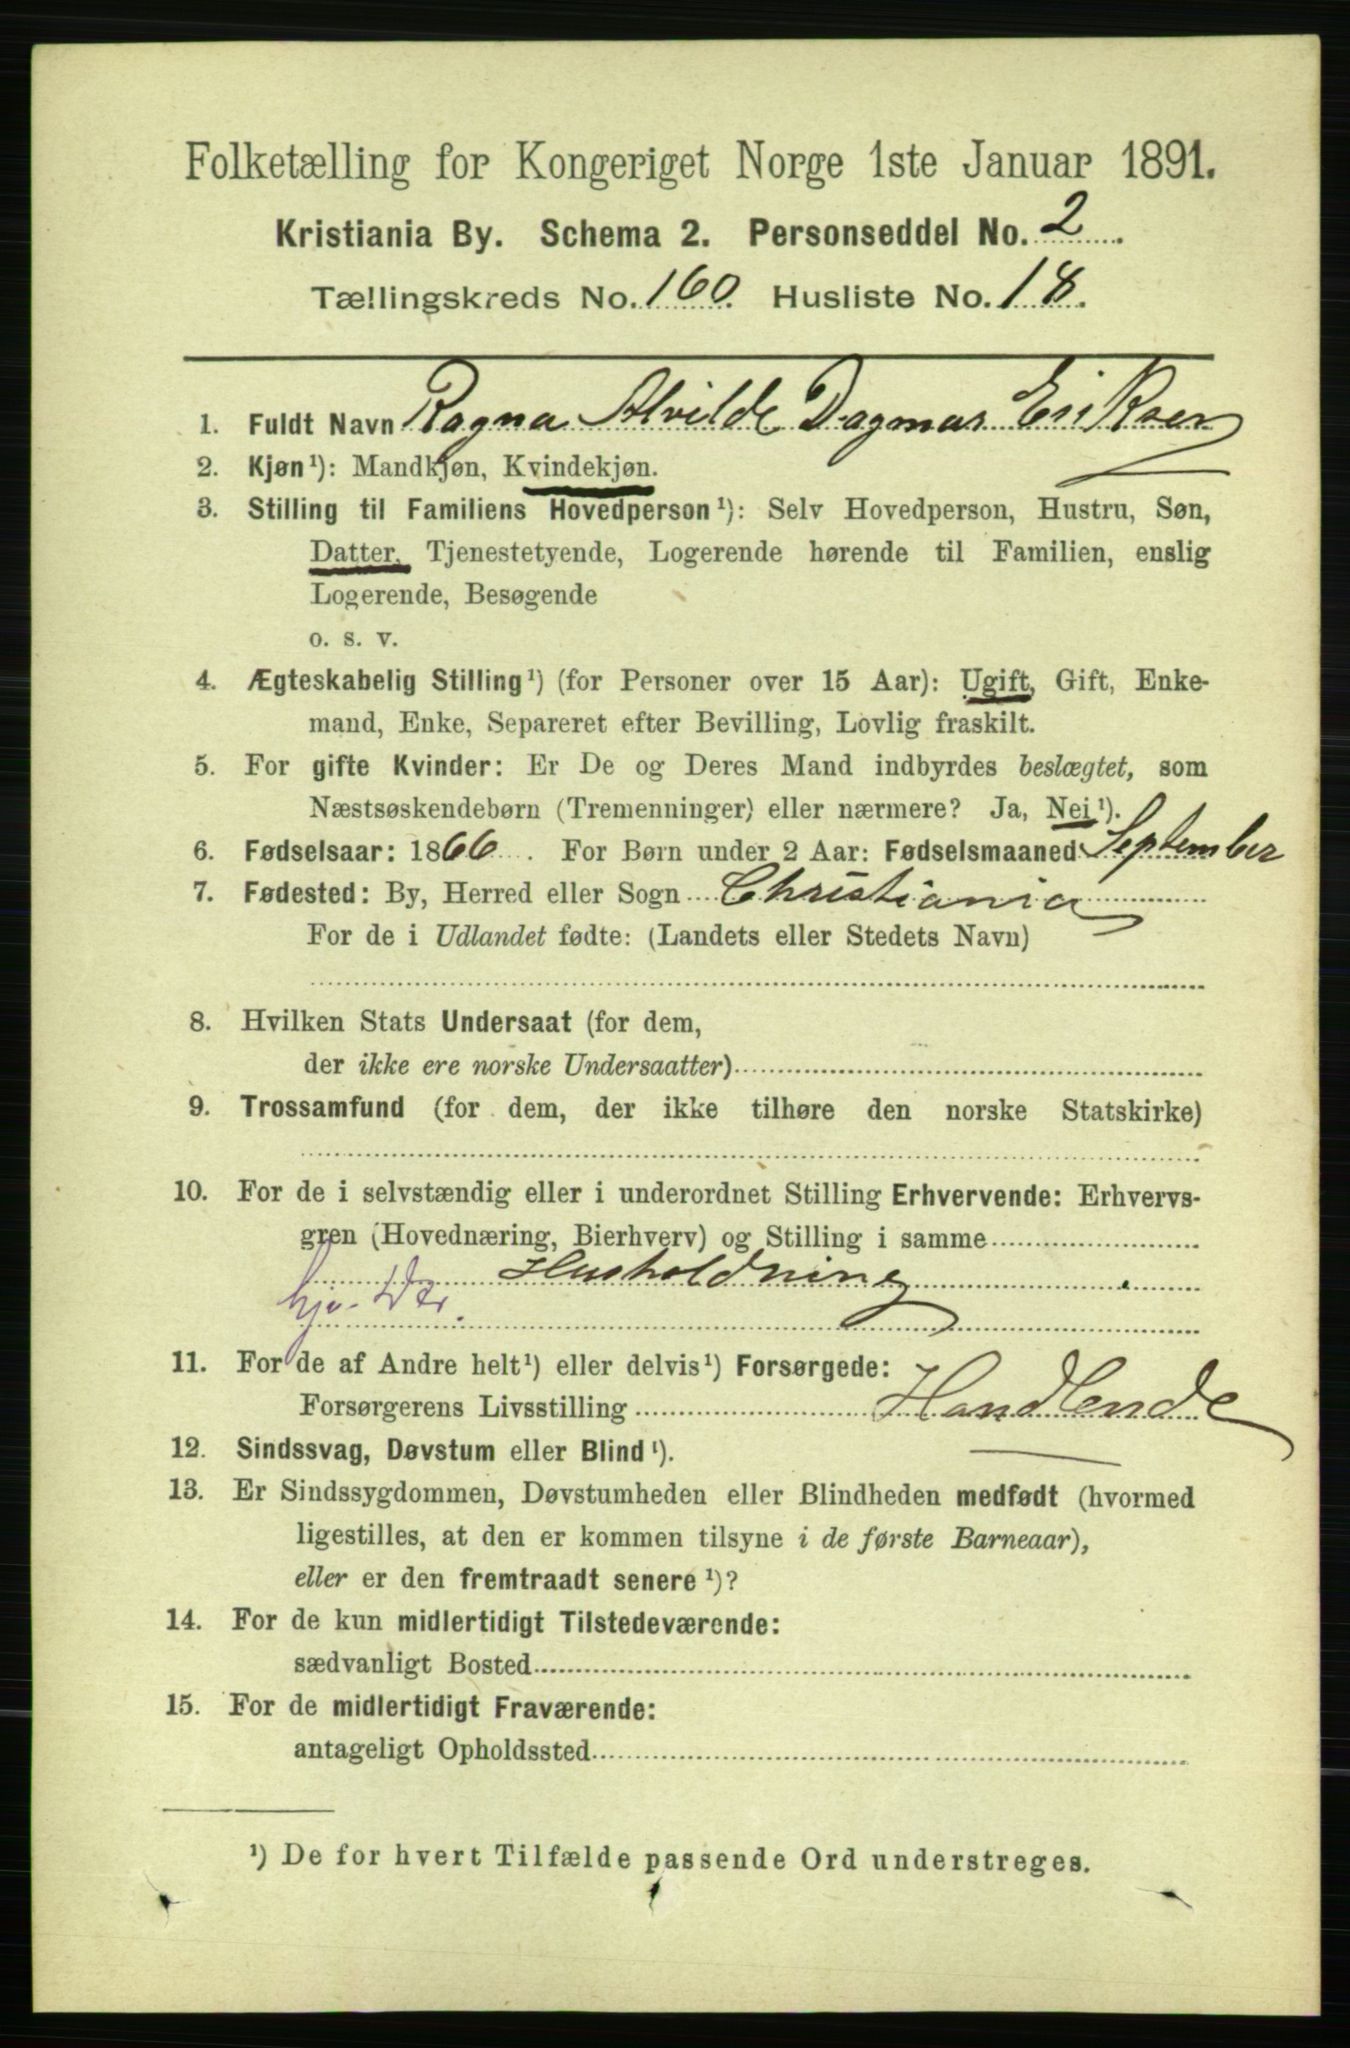 Folketælling for Kongeriget Norge 1ste Januar 1891.
Kristiania By. Schema 2. Personseddel No. 2.
Tællingskreds No. 160. Husliste No. 18.
1. Fuldt Navn Ragna Alvilde Dagmar Eriksen
2. Kjøn¹): Mandkjøn, Kvindekjøn.
3. Stilling til Familiens Hovedperson¹): Selv Hovedperson, Hustru, Søn,
Datter, Tjenestetyende, Logerende hørende til Familien, enslig
Logerende, Besøgende
o. s. v.
4. Ægteskabelig Stilling¹) (for Personer over 15 Aar): Ugift, Gift, Enke-
mand, Enke, Separeret efter Bevilling, Lovlig fraskilt.
5. For gifte Kvinder: Er De og Deres Mand indbyrdes beslægtet, som
Næstsøskendebørn (Tremenninger) eller nærmere? Ja, Nei¹).
6. Fødselsaar: 1866. For Børn under 2 Aar: Fødselsmaaned September
7. Fødested: By, Herred eller Sogn Christiania
For de i Udlandet fødte: (Landets eller Stedets Navn)
8. Hvilken Stats Undersaat (for dem,
der ikke ere norske Undersaatter)
9. Trossamfund (for dem, der ikke tilhøre den norske Statskirke)
10. For de i selvstændig eller i underordnet Stilling Erhvervende: Erhvervs-
gren (Hovednæring, Bierhverv) og Stilling i samme
Husholdning
11. For de af Andre helt¹) eller delvis¹) Forsørgede:
Forsørgerens Livsstilling Handlende
12. Sindssvag, Døvstum eller Blind¹).
13. Er Sindssygdommen, Døvstumheden eller Blindheden medfødt (hvormed
ligestilles, at den er kommen tilsyne i de første Barneaar),
eller er den fremtraadt senere¹)?
14. For de kun midlertidigt Tilstedeværende:
sædvanligt Bosted
15. For de midlertidigt Fraværende:
antageligt Opholdssted
¹) De for hvert Tilfælde passende Ord understreges.